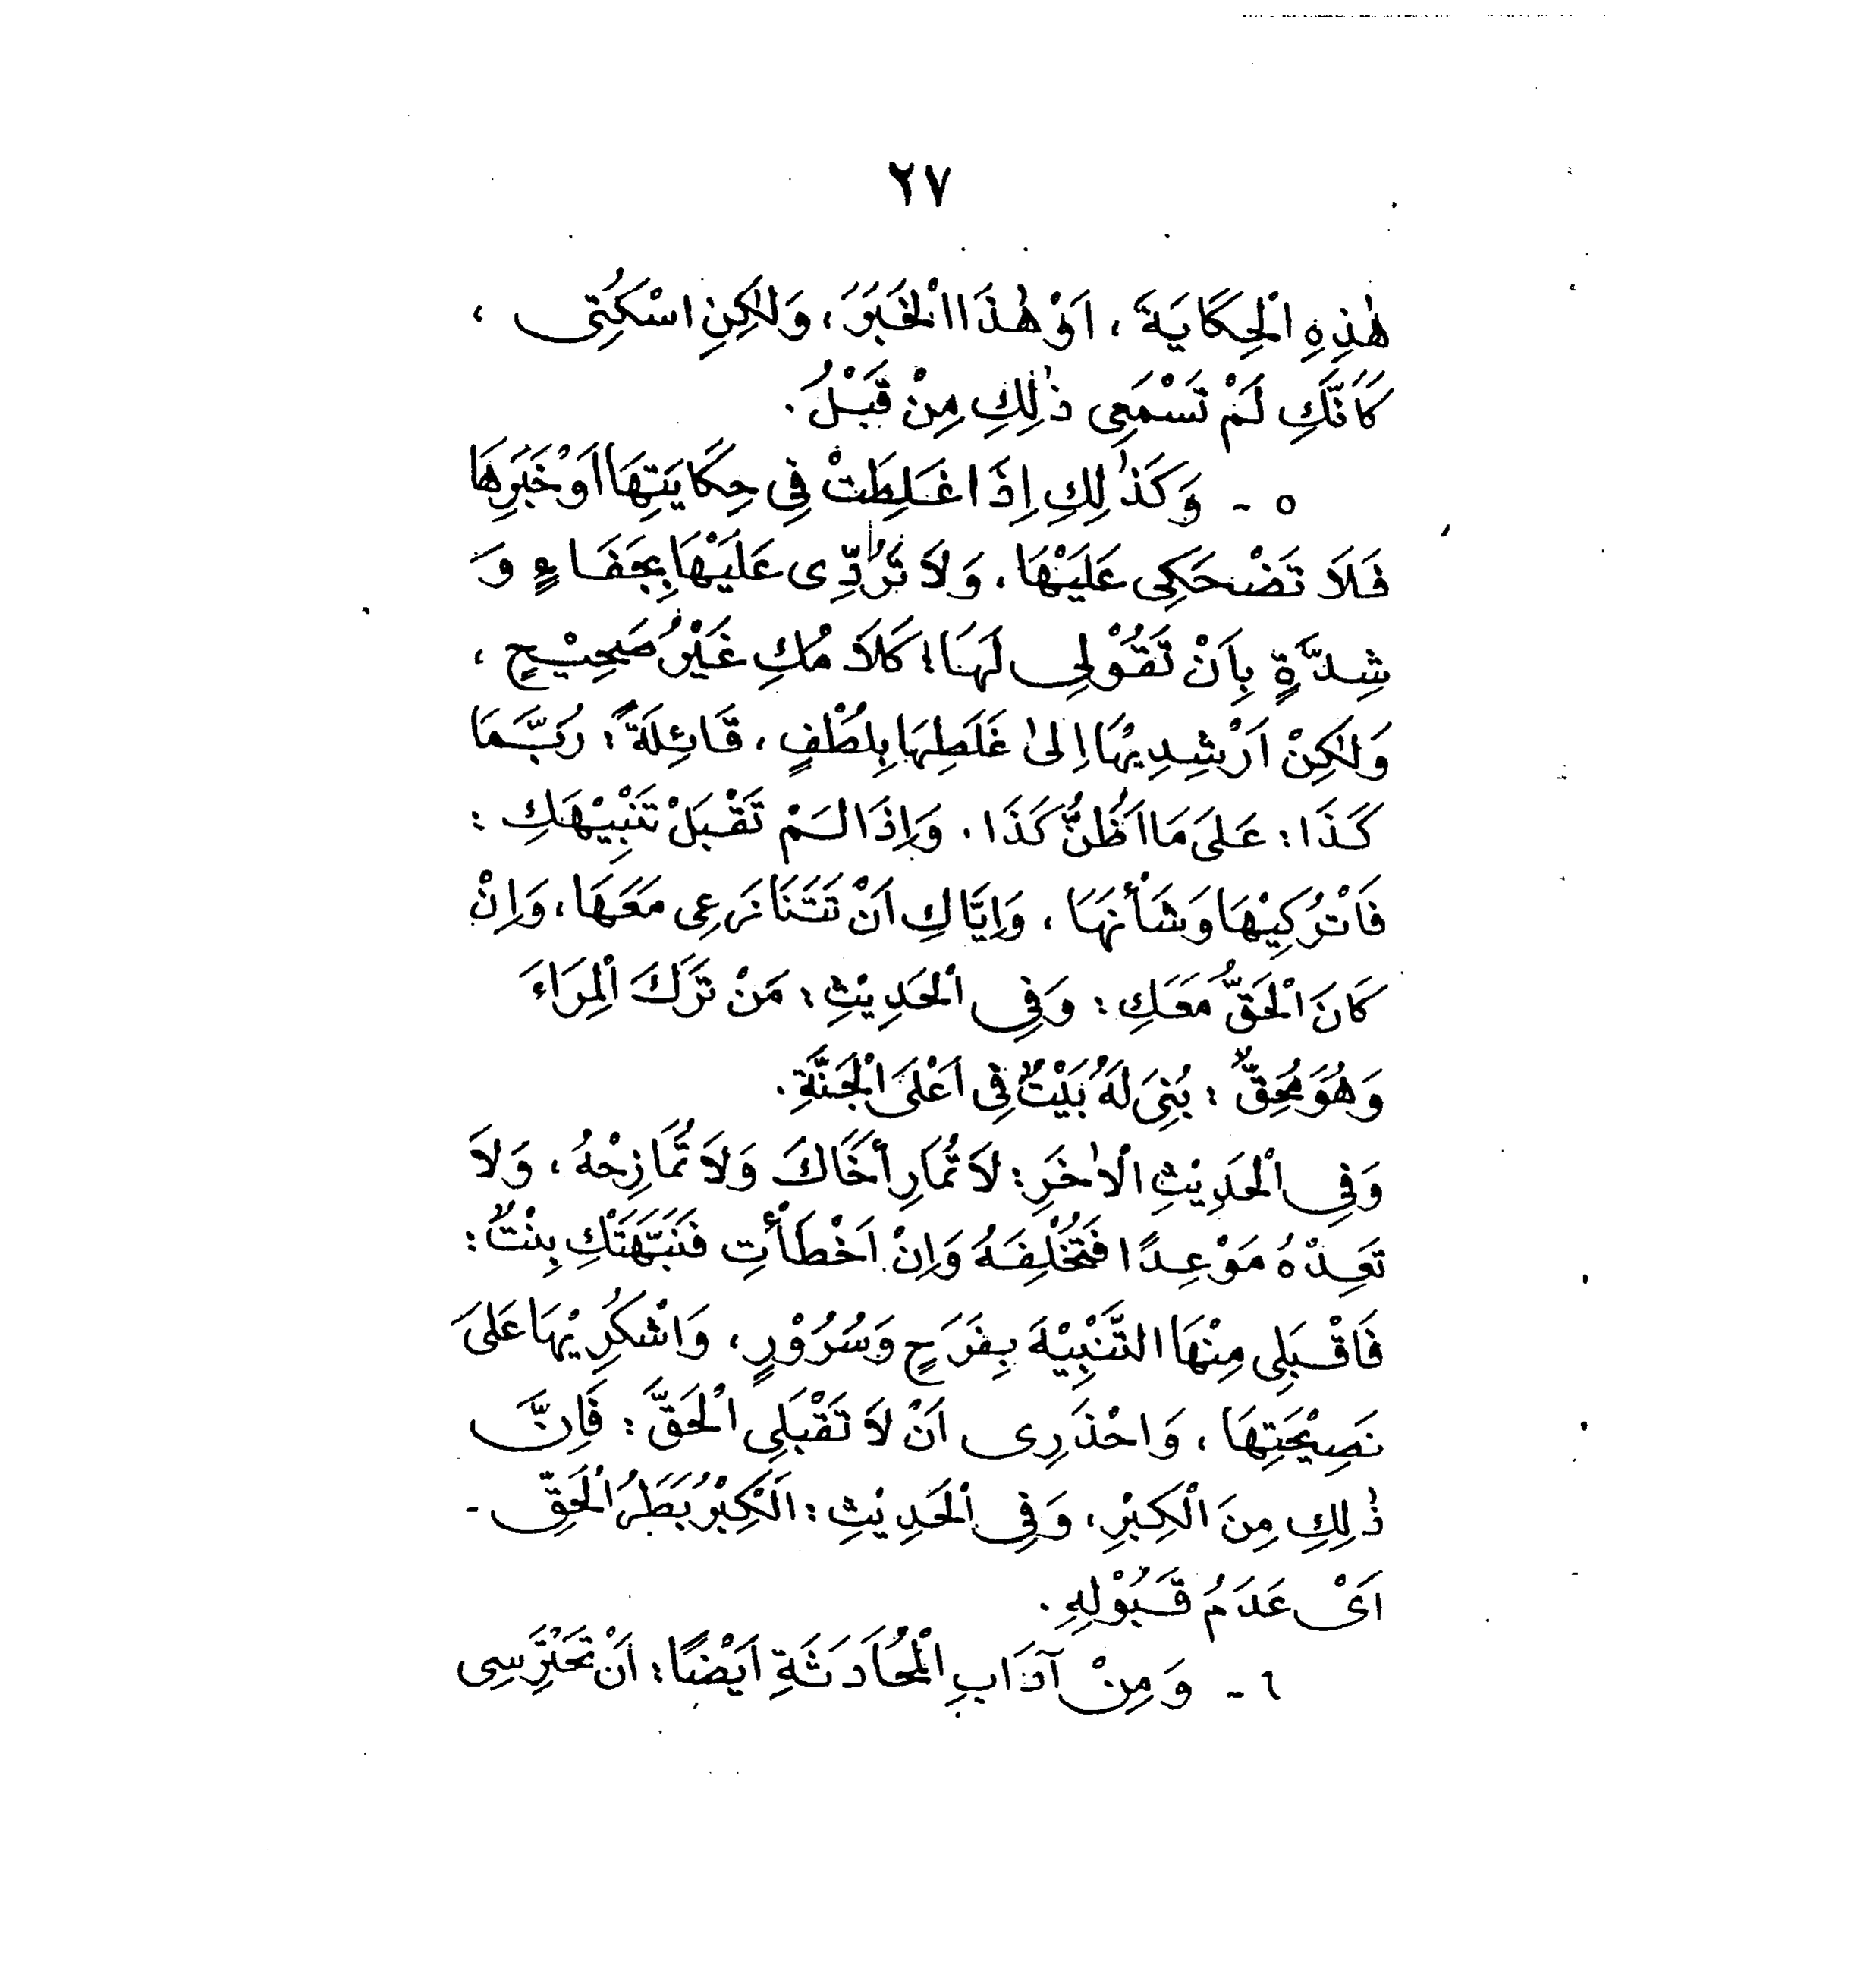 ٢٧
هٰذِهِ الْحِكَايَةَ ، اَوْ هٰذَا الْخَبَرَ ، وَلٰكِنِ اسْكُتِى ،
كَاَنَّكِ لَمْ تَسْمَعِى ذٰلِكِ مِنْ قَبْلُ .
٥ - وَكَذٰلِكِ اِذَا غَلِطَتْ فِى حِكَايَتِهَا اَوْ خَبَرِهَا
فَلَا تَضْحَكِى عَلَيْهَا ، وَلَا تَرُدِّى عَلَيْهَا بِجَفَاءٍ وَ
شِدَّةٍ بِاَنْ تَقُوْلِى لَهَا : كَلَامُكِ غَيْرُ صَحِيْحٍ ،
وَلٰكِنْ اَرْشِدِيْهَا اِلىٰ غَلَطِهَا بِلُطْفٍ ، قَائِلَةً : رُبَّمَا
كَذَا : عَلَى مَا اَظُنُّ كَذَا . وَاِذَا لَمْ تَقْبَلْ تَنْبِيْهَكِ :
فَاتْرُكِيْهَا وَشَأْنَهَا ، وَاِيَّاكِ اَنْ تَتَنَازَعِى مَعَهَا ، وَاِنْ
كَانَ الْحَقُّ مَعَكِ : وَفِى الْحَدِيْثِ : مَنْ تَرَكَ الْمِرَاءَ
وَهُوَ مُحِقٌّ : بُنِىَ لَهُ بَيْتٌ فِى اَعْلَى الْجَنَّةِ .
وَفِى الْحَدِيْثِ الْاٰخَرِ : لَا تُمَارِ أَخَاكَ وَلَا تُمَازِحْهُ ، وَلَا
تَعِدْهُ مَوْعِدًا فَتُخْلِفَهُ وَاِنْ اَخْطَأْتِ فَنَبَّهَتْكِ بِنْتٌ :
فَاقْبَلِى مِنْهَا التَّنْبِيْهَ بِفَرَحٍ وَسُرُوْرٍ ، وَاشْكُرِيْهَا عَلَى
نَصِيْحَتِهَا ، وَاحْذَرِى اَنْ لَا تَقْبَلِى الْحَقَّ : فَاِنَّ
ذٰلِكِ مِنَ الْكِبْرِ ، وَفِى الْحَدِيْثِ : اَلْكِبْرُ بَطَرُ الْحَقِّ -
اَىْ عَدَمُ قَبُوْلِهِ .
٦ - وَمِنْ آدَابِ الْمُحَادَثَةِ اَيْضًا : اَنْ تَحْتَرِسِى